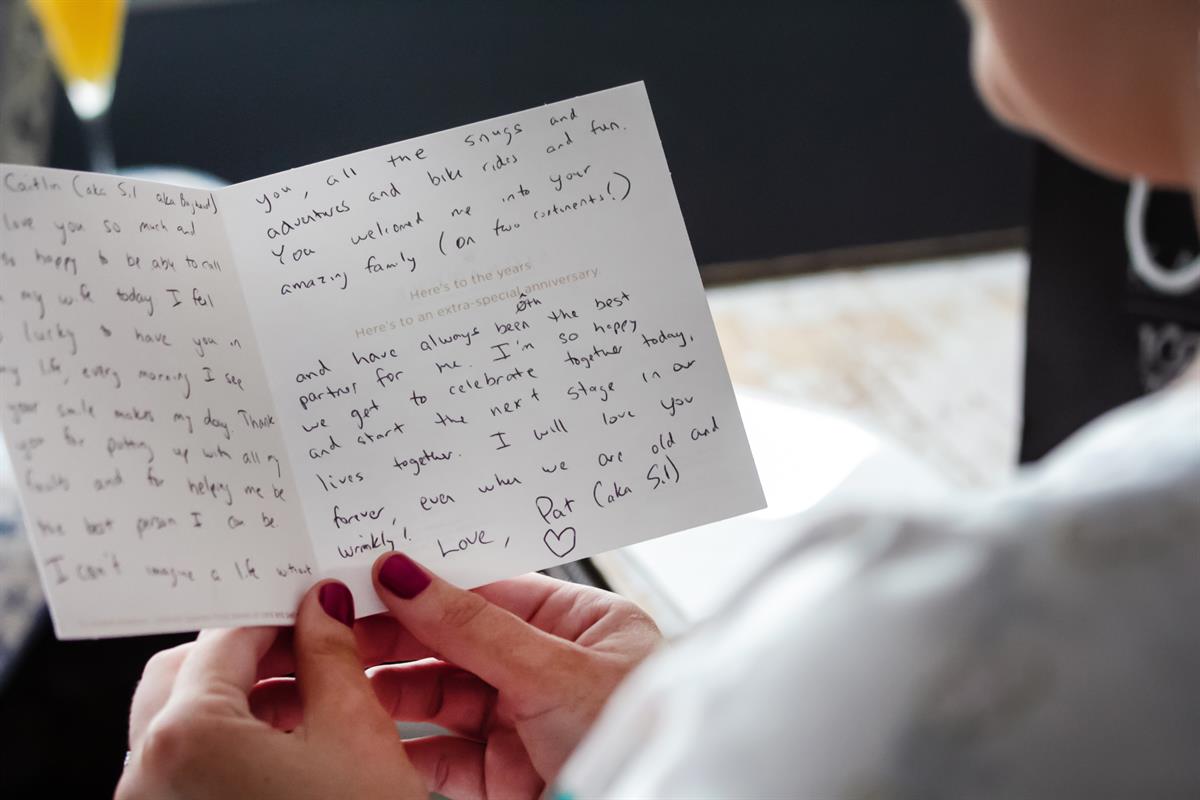 Caitlin (aka S.1 aka
love you so much and
so happy to be able to call
my wife today I feel
lucky to have you in
my life, every morning I see
your smile makes my day. Thank
you for putting up with all my
faults and for helping me be
the best person I can be.
I can't imagine a life without
you, all the snugs and
adventures and bike rides and fun.
You welcomed me into your
amazing family (on two continents!)
Here's to the years
Here's to an extra-special anniversary
0th
and have always been the best
partner for me. I'm so happy
we get to celebrate together today,
and start the next stage in our
lives together. I will love you
forever, even when we are old and
wrinkly! Love, Pat (aka S.1)